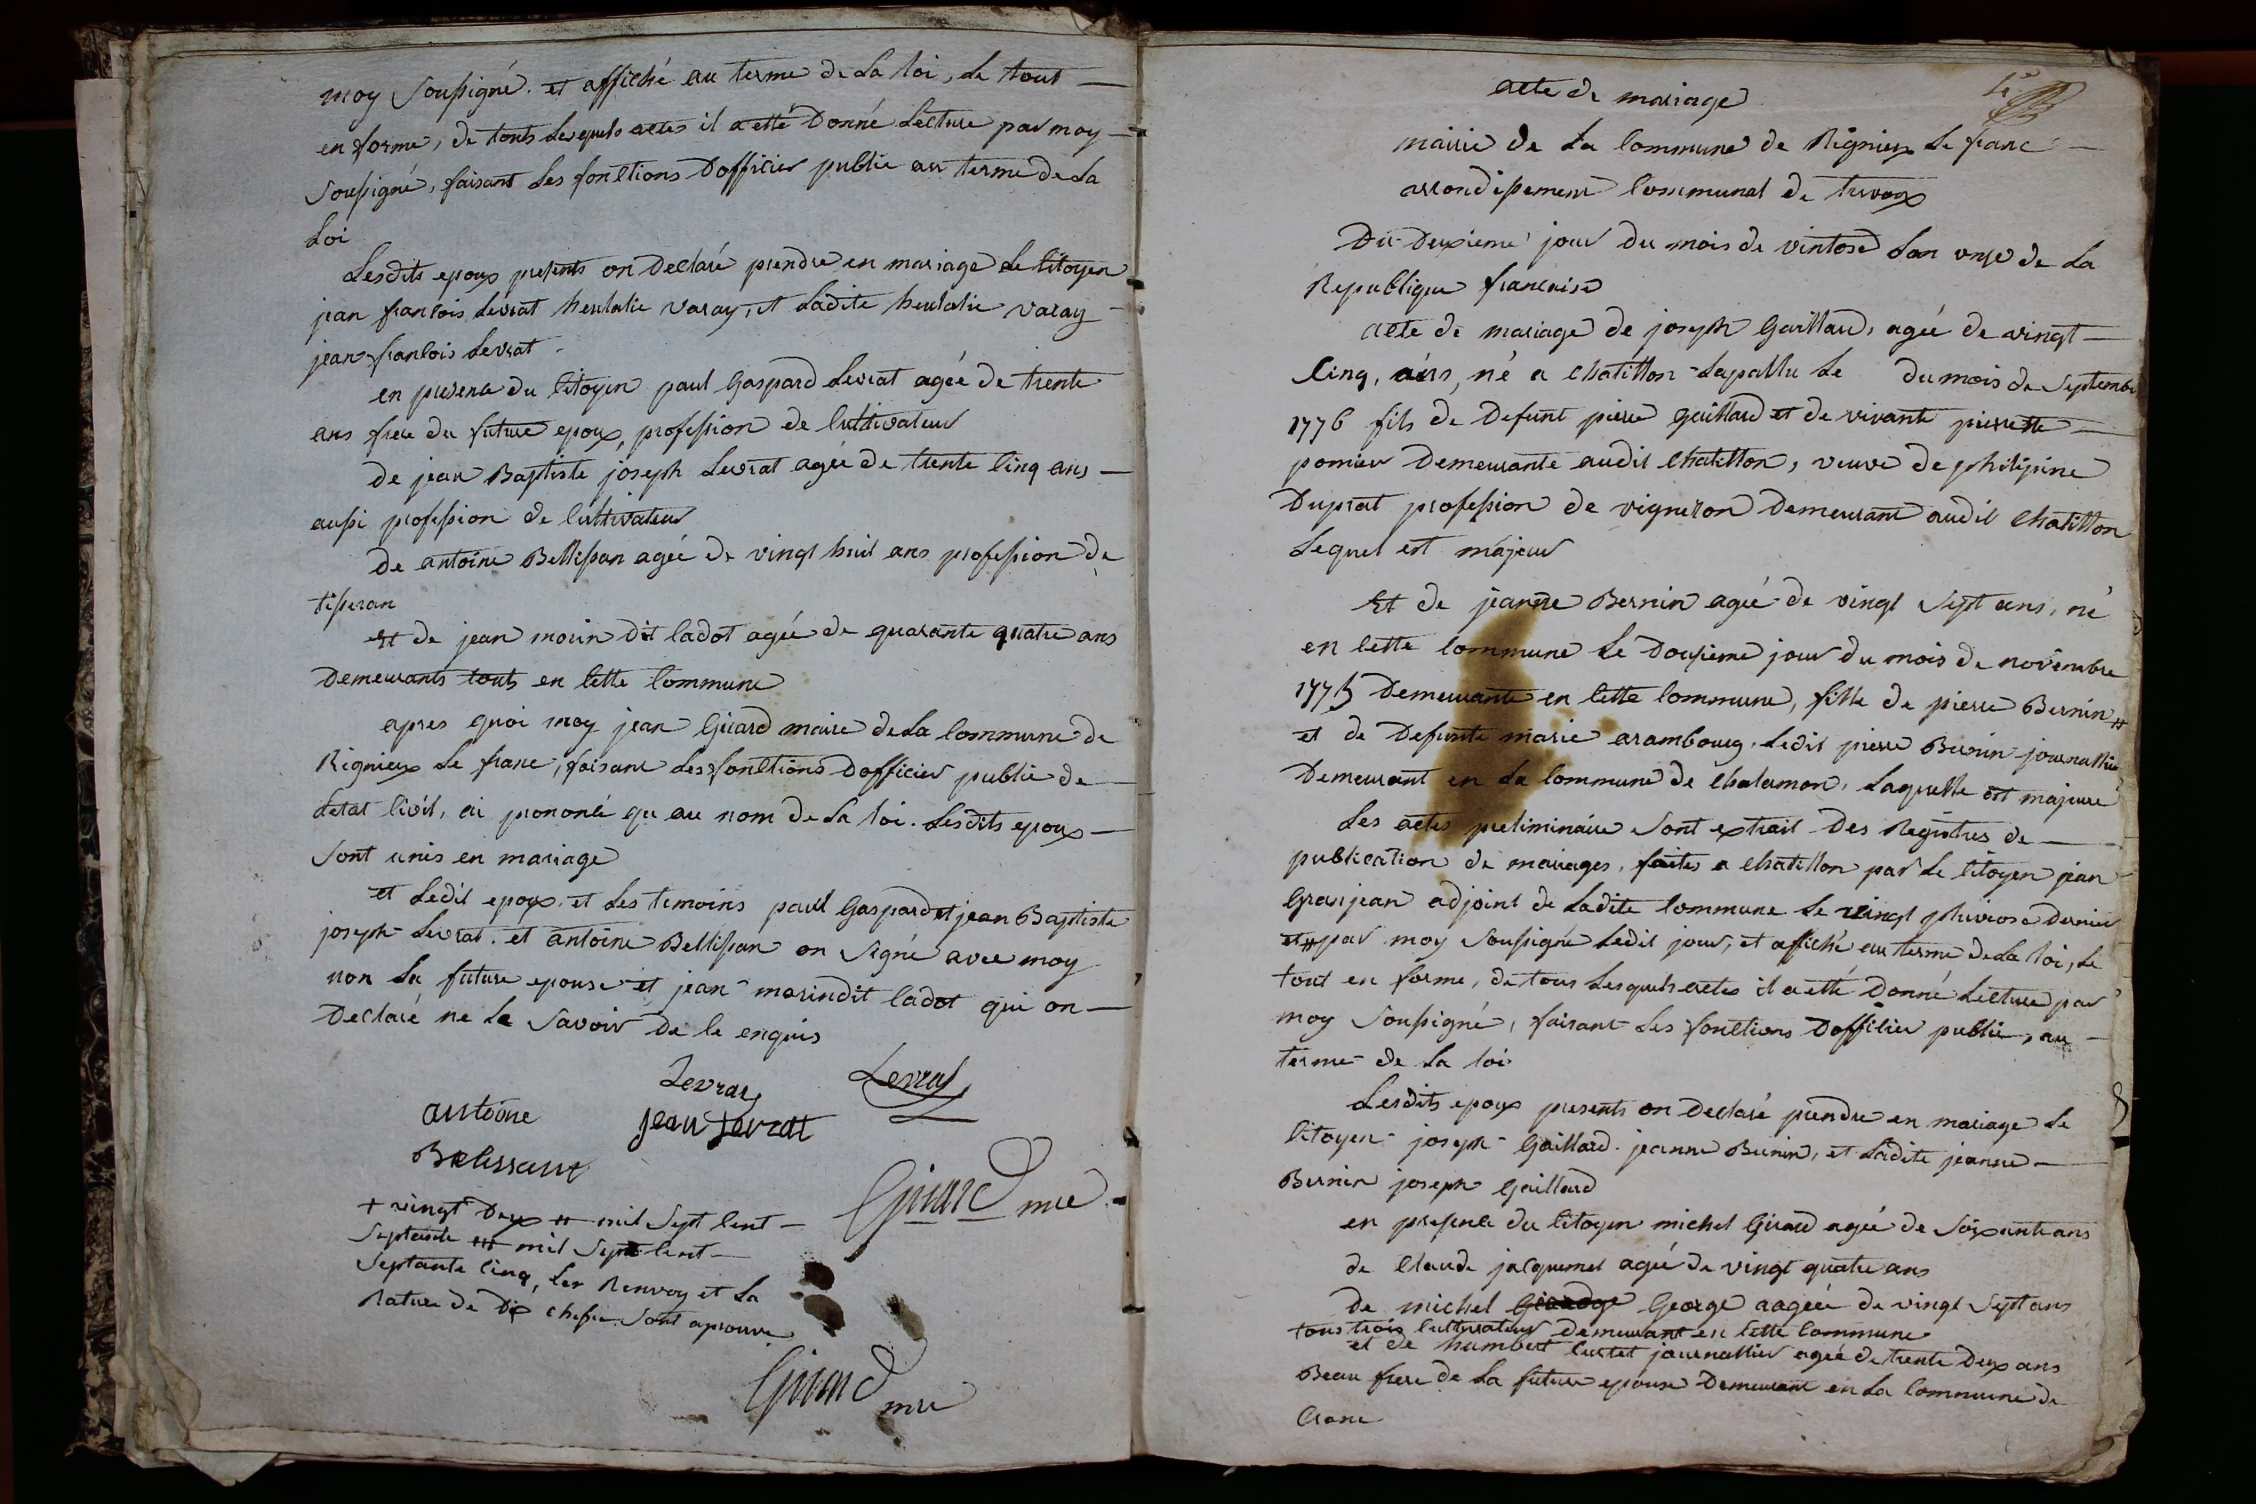 moy Soussigné. et affiché au terme de La loi, Le tout
en forme, de touts Lesquels actes il a etté Donné Lecture par moy
Soussigné, faisant Les fonctions Dofficier public au terme de La
Loi
Lesdits epoux presents on Declaré prendre en mariage Le Citoyen
jean francois Levrat heulalie varay, et Ladite heulalie varay
jean francois Levrat
en presence du Citoyen paul Gaspard Levrat agée de trente
ans frere du future epoux, profession de Cultivateur
De jean Baptiste joseph Levrat agée de trente Cinq ans
aussi profession de Cultivateur
De antoine Bellissan agée de vingt huit ans profession de
tisseran
et de jean morin dit ladot agée de quarante quatre ans
Demeurants touts en Cette Commune
apres quoi moy jean Girard maire de La Commune de
Rignieux Le franc, faisant Les fonctions Dofficier public de
Letat Civil, ai prononcé qu au nom de La loi. Lesdits epoux
Sont unis en mariage
et Ledit epoux et Les temoins paul Gaspard et jean Baptiste
joseph Levrat. et antoine Bellissan on Signé avec moy
non La future epouse et jean morin dit ladot qui on
Declaré ne Le Savoir de Ce enquis
Levrat Levrat
antoine jean Levratt
Belissant
Girard mre
+ vingt Deux # mil Sept Cent
Septante ### mil Sept Cent
Septante Cinq, Les Renvoy et La
Rature de Dix chifre Sont aprouvé
Girard mre
acte de mariage
mairie de La Commune de Rignieux Le franc
arrondissement Communal de trevoux
Du Deuxieme jour du mois de vintose Lan onze de La
Republique francaise
acte de mariage de joseph Gaillard, agée de vingt
Cinq, ans, né a Chatillon Lapallu Le du mois de Septembre
1776 fils de Defunt pierre Gaillard et de vivante pierrette
pomier Demeurante audit Chatillon, veuve de philipine
Duprat profession de vigneron Demeurant audit Chatillon
Lequel est majeur
Et de jeanne Bernin agée de vingt Sept ans, né
en Cette Commune Le Douxieme jour du mois de novembre
1775 Demeurante en Cette Commune, fille de pierre Bernin #
et de Defunte marie arambourg. Ledit pierre Bernin journallier
Demeurant en La Commune de Chalamon, Laquelle est majeure
Les actes preliminaire Sont extrait Des Registres de
publication de mariages, faites a Chatillon par Le Citoyen jean
Granjean adjoint de Ladite Commune Le vingt pluviose Dernier
et # par moy Soussigné Ledit jour, et affiché au terme de La loi, Le
tout en forme, de tous Lesquels actes il a etté Donné Lecture par
moy Soussigné, faisant Les fonctions Dofficier public, au
terme de La loi
Lesdits epoux presents on Declaré prendre en mariage Le
Citoyen joseph Gaillard. jeanne Bernin, et Ladite jeanne
Bernin joseph Gaillard
en presence du Citoyen michel Girard agée de Soixante ans
de Claude jacquemet agée de vingt quatre ans
De michel George aageé de vingt Sept ans
tous trois Cultivateur Demeurant en Cette Commune
et de humbert Curtet journallier agée de trente Deux ans
Beau frere de La future epouse Demeurant en La Commune de
Crans